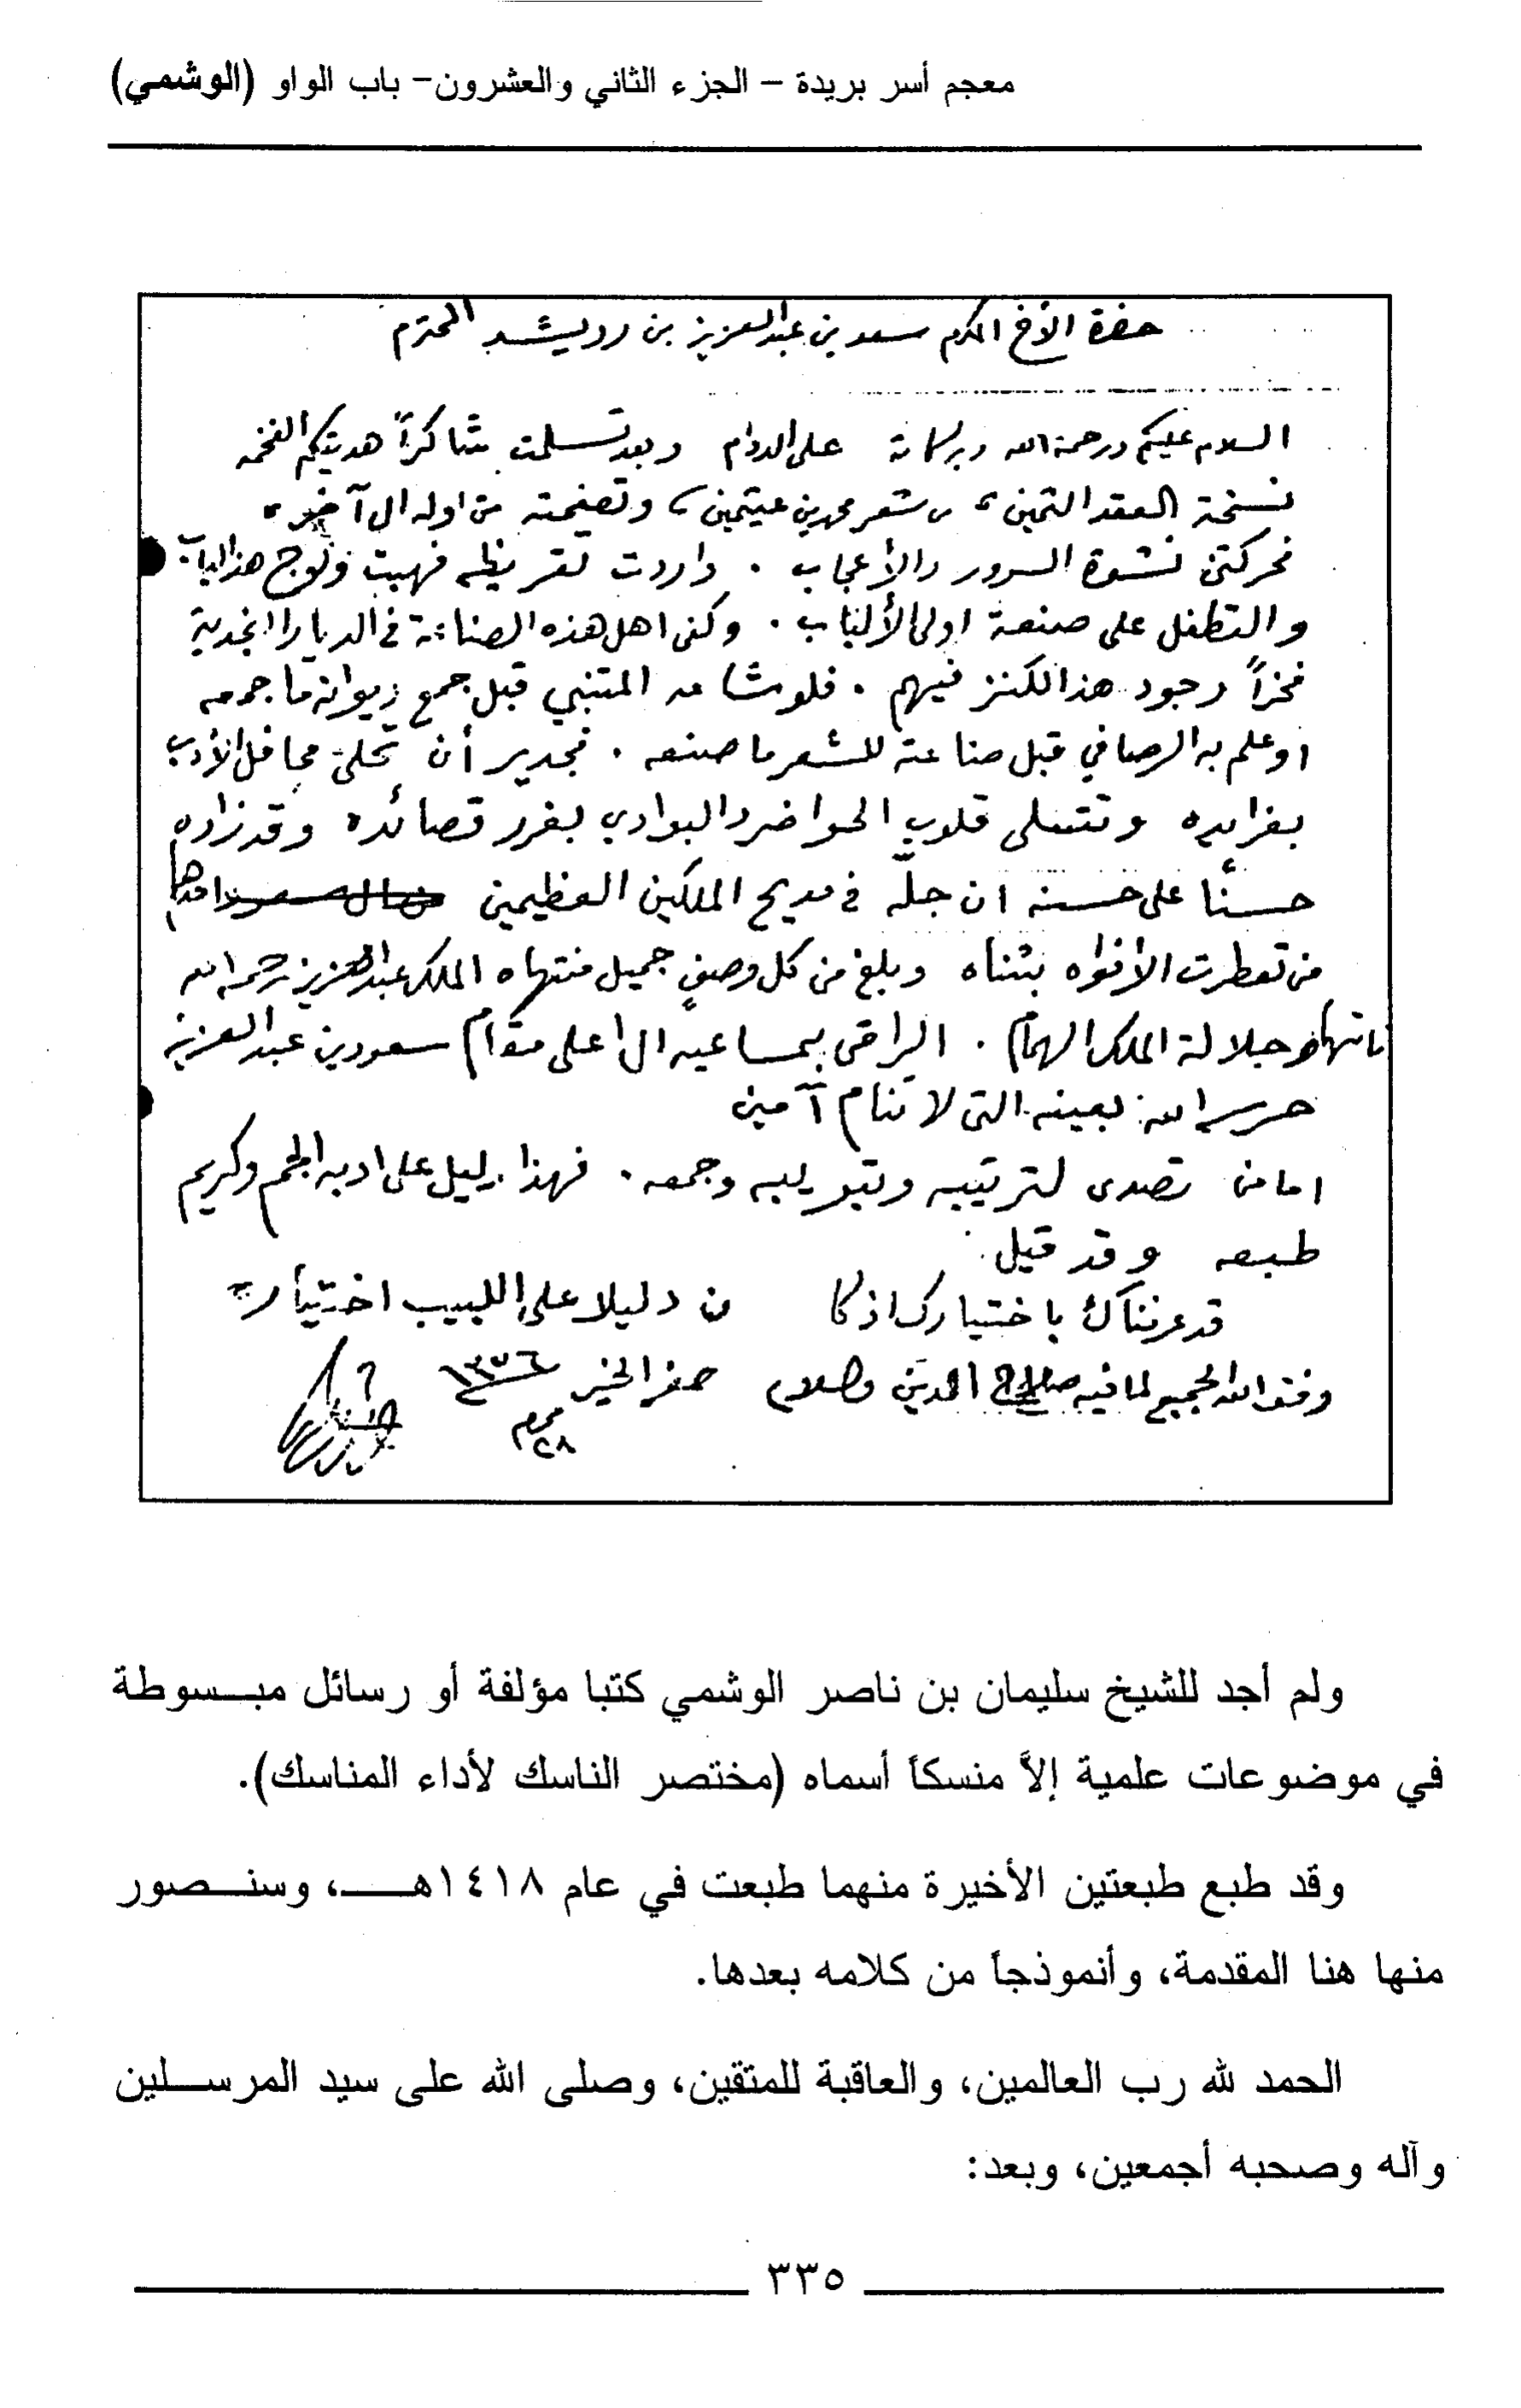 معجم أسر بريدة – الجزء الثاني والعشرون– باب الواو (الوشمي)
حضرة الأخ المكرم سعد بن عبدالعزيز بن رويشد المحترم
السلام عليكم ورحمة الله وبركاته على الدوام وبعد تسلمت شاكراً هديتكم الفخمه
نسخة العقد الثمين من شعر محمد بن عيثمين وتصفحته من اوله ال آخره
فحركتني نشوة السرور والأعجاب . واردت تقريظه فهبت ولوج هذا الباب
والتطفل على صنعة اولى الألباب . وكفى اهل هذه الصناعة في الديار النجدية
فخراً وجود هذا الكنز فيهم . فلو شاهد المتنبي قبل جمع ديوانه ما جمعه
او علم به الرصافي قبل صناعة للشعر ما صنعه . فجدير أن تحلى محافل الأدب
بفرايده وتتسلى قلوب الحواضر والبوادي بغرر قصائده وقد زاده
حسنًا على حسنه ان جلّه في مديح الملكين العظيمين احدهما
من تعطرت الأفواه بثناه وبلغ من كل وصفٍ جميل منتهاه الملك عبدالعزيز رحمه الله
ثانيهما هو جلالة الملك الهمام . الراقى بمساعيه ال اعلى مقام سعود بن عبد العزيز
حرسه الله بعينه التى لا تنام آمين
اما من تصدى لترتيبه وتبويبه وجمعه . فهذا دليل على ادبه الجم وكريم
طبعه وقد قيل
قد عرفناك باختيارك اذ كا ن دليلا على اللبيب اختياره
وفق الله الجميع لما فيه صلاح الدين
محرم
٢٨
ولم أجد للشيخ سليمان بن ناصر الوشمي كتبا مؤلفة أو رسائل مبسوطة
في موضوعات علمية إلاَّ منسكاً أسماه (مختصر الناسك لأداء المناسك).
وقد طبع طبعتين الأخيرة منهما طبعت في عام ١٤١٨هـ، وسنصور
منها هنا المقدمة، وأنموذجاً من كلامه بعدها.
الحمد لله رب العالمين، والعاقبة للمتقين، وصلى الله على سيد المرسلين
وآله وصحبه أجمعين، وبعد:
٣٣٥